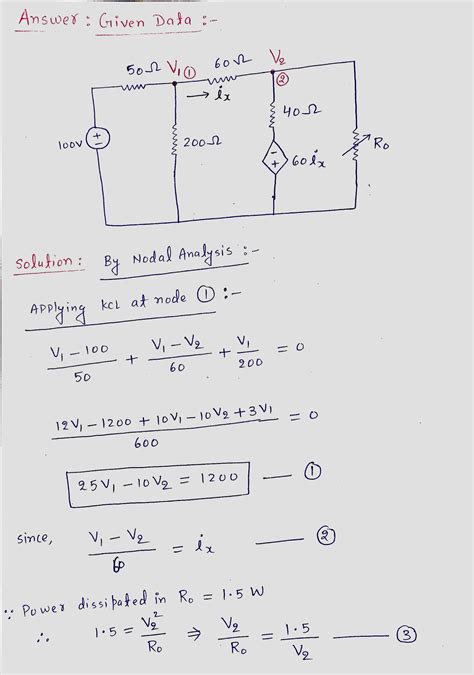 Answer : Given Data :-
50Ω V₁ ① 60Ω V₂
→ iₓ ②
40Ω
100V + − 200Ω R₀
− + 60 iₓ
Solution : By Nodal Analysis :-
Applying KCL at node ① :-
V₁ − 100 / 50 + V₁ − V₂ / 60 + V₁ / 200 = 0
12V₁ − 1200 + 10V₁ − 10V₂ + 3V₁ / 600 = 0
25V₁ − 10V₂ = 1200 — ①
since, V₁ − V₂ / 60 = iₓ — ②
∵ Power dissipated in R₀ = 1.5 W
∴ 1.5 = V₂² / R₀ ⇒ V₂ / R₀ = 1.5 / V₂ — ③